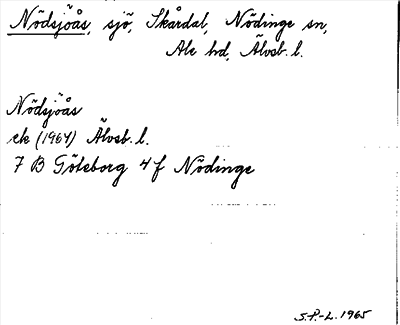 Nödsjöås, sjö, Skårdal, Nödinge sn,
Ale hd, Älvsb. l.
Nödsjöås
ek (1964) Älvsb. l.
7 B Göteborg 4 f Nödinge
S.P.-L. 1965